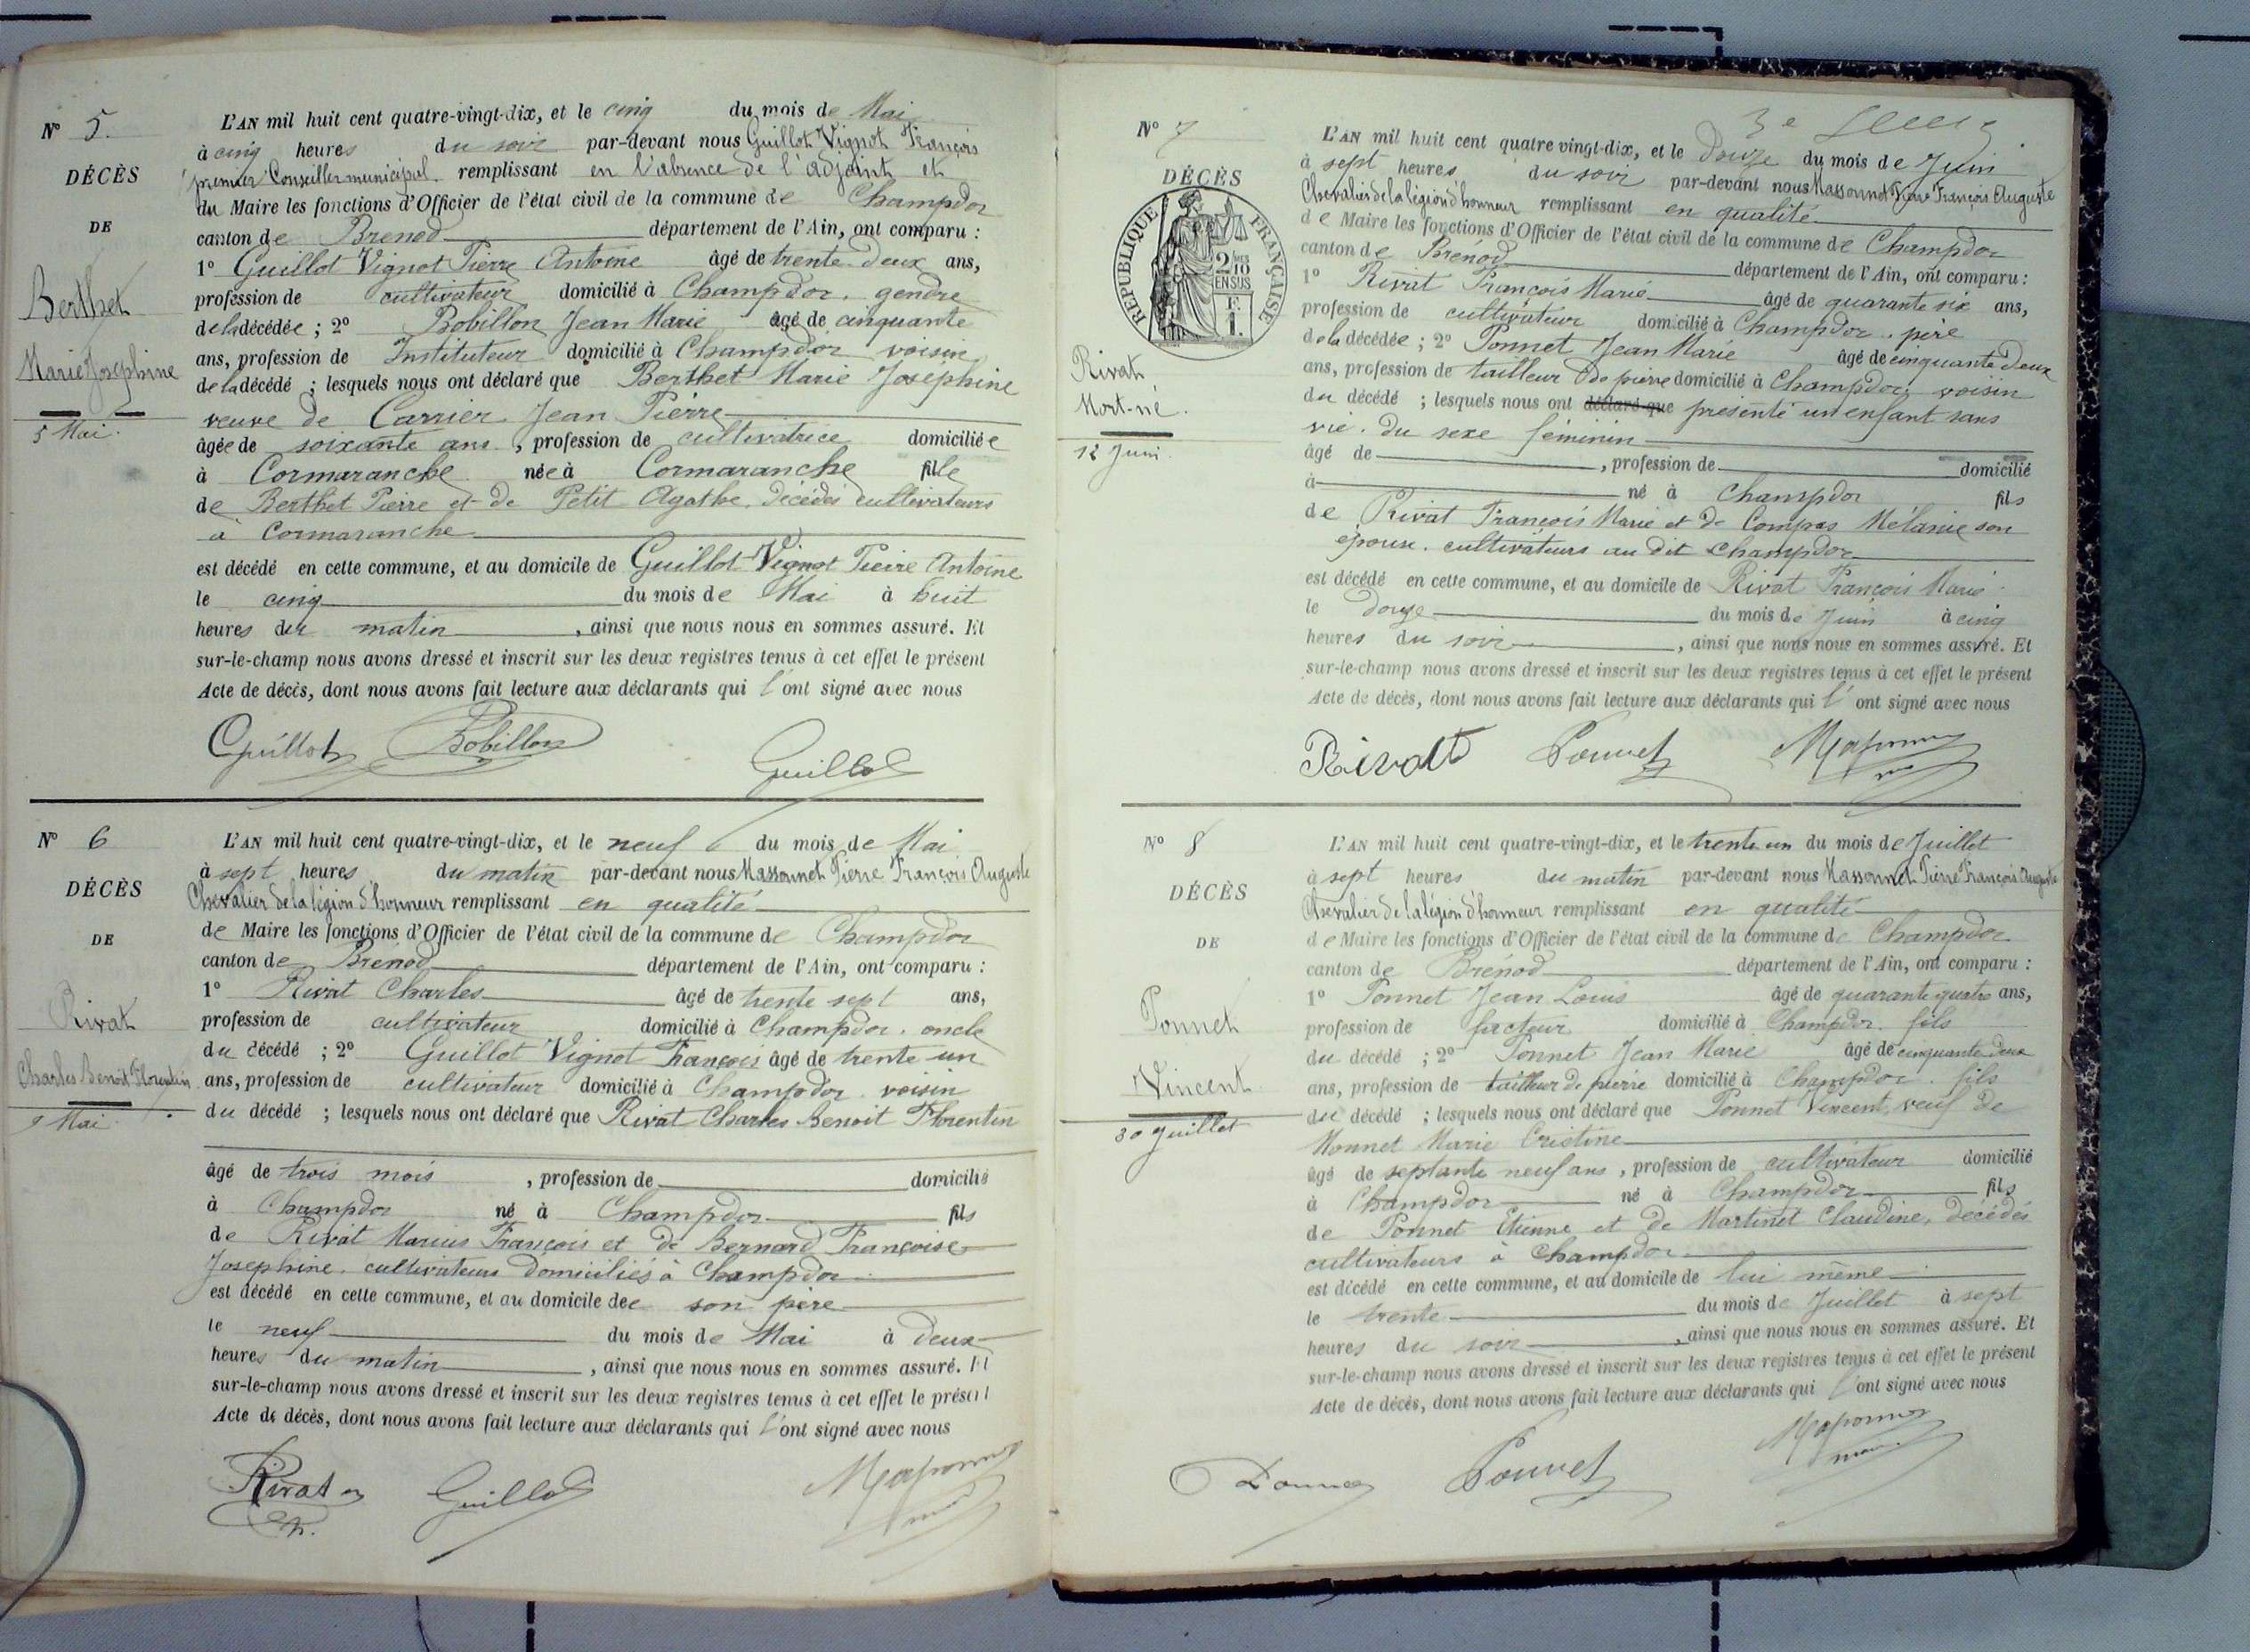 N° 5.
DÉCÈS
DE
Berthet
Marie Josephine
5 Mai.
L'AN mil huit cent quatre-vingt-dix, et le cinq du mois de Mai
à cinq heures du soir par-devant nous Guillot Vignot François
premier Conseiller municipal remplissant en l'absence de l'adjoint et
du Maire les fonctions d'Officier de l'état civil de la commune de Champdor
canton de Brenod département de l'Ain, ont comparu :
1° Guillot Vignot Pierre Antoine âgé de trente deux ans,
profession de cultivateur domicilié à Champdor. gendre
de la décédée ; 2° Bobillon Jean Marie âgé de cinquante
ans, profession de Instituteur domicilié à Champdor voisin
de la décédé ; lesquels nous ont déclaré que Berthet Marie Josephine
veuve de Carrier Jean Pierre
âgée de soixante ans, profession de cultivatrice domiciliée
à Cormaranche née à Cormaranche fille
de Berthet Pierre et de Petit Agathe. décédés cultivateurs
à Cormaranche
est décédé en cette commune, et au domicile de Guillot Vignot Pierre Antoine
le cinq du mois de Mai à huit
heures du matin, ainsi que nous nous en sommes assuré. Et
sur-le-champ nous avons dressé et inscrit sur les deux registres tenus à cet effet le présent
Acte de décès, dont nous avons fait lecture aux déclarants qui l'ont signé avec nous
Guillot Bobillon Guillot
N° 6
DÉCÈS
DE
Rivat
Charles Benoit Florentin
9 Mai.
L'AN mil huit cent quatre-vingt-dix, et le neuf du mois de Mai
à sept heures du matin par-devant nous Massonnet Pierre François Auguste
Chevalier de la légion d'honneur remplissant en qualité
de Maire les fonctions d'Officier de l'état civil de la commune de Champdor
canton de Brénod département de l'Ain, ont comparu :
1° Rivat Charles âgé de trente sept ans,
profession de cultivateur domicilié à Champdor. oncle
du décédé ; 2° Guillot Vignot François âgé de trente un
ans, profession de cultivateur domicilié à Champdor voisin
du décédé ; lesquels nous ont déclaré que Rivat Charles Benoit Florentin
âgé de trois mois, profession de domicilié
à Champdor né à Champdor fils
de Rivat Marius François et de Bernard Françoise
Josephine. cultivateurs domiciliés à Champdor
est décédé en cette commune, et au domicile de son père
le neuf du mois de Mai à deux
heures du matin, ainsi que nous nous en sommes assuré. Et
sur-le-champ nous avons dressé et inscrit sur les deux registres tenus à cet effet le présent
Acte de décès, dont nous avons fait lecture aux déclarants qui l'ont signé avec nous
Rivat Ch. Guillot Massonnet
N° 7
DÉCÈS
RÉPUBLIQUE FRANÇAISE
2/10 EN SUS
F. 1.
Rivat
Mort-né.
12 Juin.
3e
L'AN mil huit cent quatre vingt-dix, et le douze du mois de Juin
à sept heures du soir par-devant nous Massonnet Pierre François Auguste
Chevalier de la légion d'honneur remplissant en qualité
de Maire les fonctions d'Officier de l'état civil de la commune de Champdor
canton de Brénod département de l'Ain, ont comparu :
1° Rivat François Marie âgé de quarante six ans,
profession de cultivateur domicilié à Champdor. père
de la décédée ; 2° Ponnet Jean Marie âgé de cinquante deux
ans, profession de tailleur de pierre domicilié à Champdor voisin
du décédé ; lesquels nous ont déclaré que présenté un enfant sans
vie. du sexe féminin
âgé de, profession de domicilié
à né à Champdor fils
de Rivat François Marie et de Compas Mélanie son
épouse. cultivateurs au dit Champdor
est décédé en cette commune, et au domicile de Rivat François Marie
le douze du mois de Juin à cinq
heures du soir, ainsi que nous nous en sommes assuré. Et
sur-le-champ nous avons dressé et inscrit sur les deux registres tenus à cet effet le présent
Acte de décès, dont nous avons fait lecture aux déclarants qui l'ont signé avec nous
Rivat Ponnet Massonnet
N° 8
DÉCÈS
DE
Ponnet
Vincent
30 Juillet
L'AN mil huit cent quatre-vingt-dix, et le trente un du mois de Juillet
à sept heures du matin par-devant nous Massonnet Pierre François Auguste
Chevalier de la légion d'honneur remplissant en qualité
de Maire les fonctions d'Officier de l'état civil de la commune de Champdor
canton de Brénod département de l'Ain, ont comparu :
1° Ponnet Jean Louis âgé de quarante quatre ans,
profession de facteur domicilié à Champdor. fils
du décédé ; 2° Ponnet Jean Marie âgé de cinquante deux
ans, profession de tailleur de pierre domicilié à Champdor. fils
du décédé ; lesquels nous ont déclaré que Ponnet Vincent, veuf de
Monnet Marie Cristine
âgé de septante neuf ans, profession de cultivateur domicilié
à Champdor né à Champdor fils
de Ponnet Etienne et de Martinet Claudine, décédés
cultivateurs à Champdor
est décédé en cette commune, et au domicile de lui même
le trente du mois de Juillet à sept
heures du soir, ainsi que nous nous en sommes assuré. Et
sur-le-champ nous avons dressé et inscrit sur les deux registres tenus à cet effet le présent
Acte de décès, dont nous avons fait lecture aux déclarants qui l'ont signé avec nous
Ponnet Ponnet Massonnet